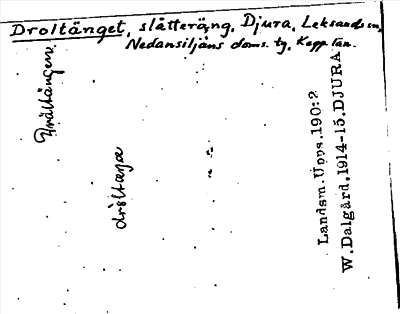 Droltänget, slåtteräng, Djura, Leksands sn,
Nedansiljans doms. tg, Kopp. län.
Dråltängen
dròltæŋə
Landsm. Upps. 190:2
W. Dalgård. 1914-15. DJURA